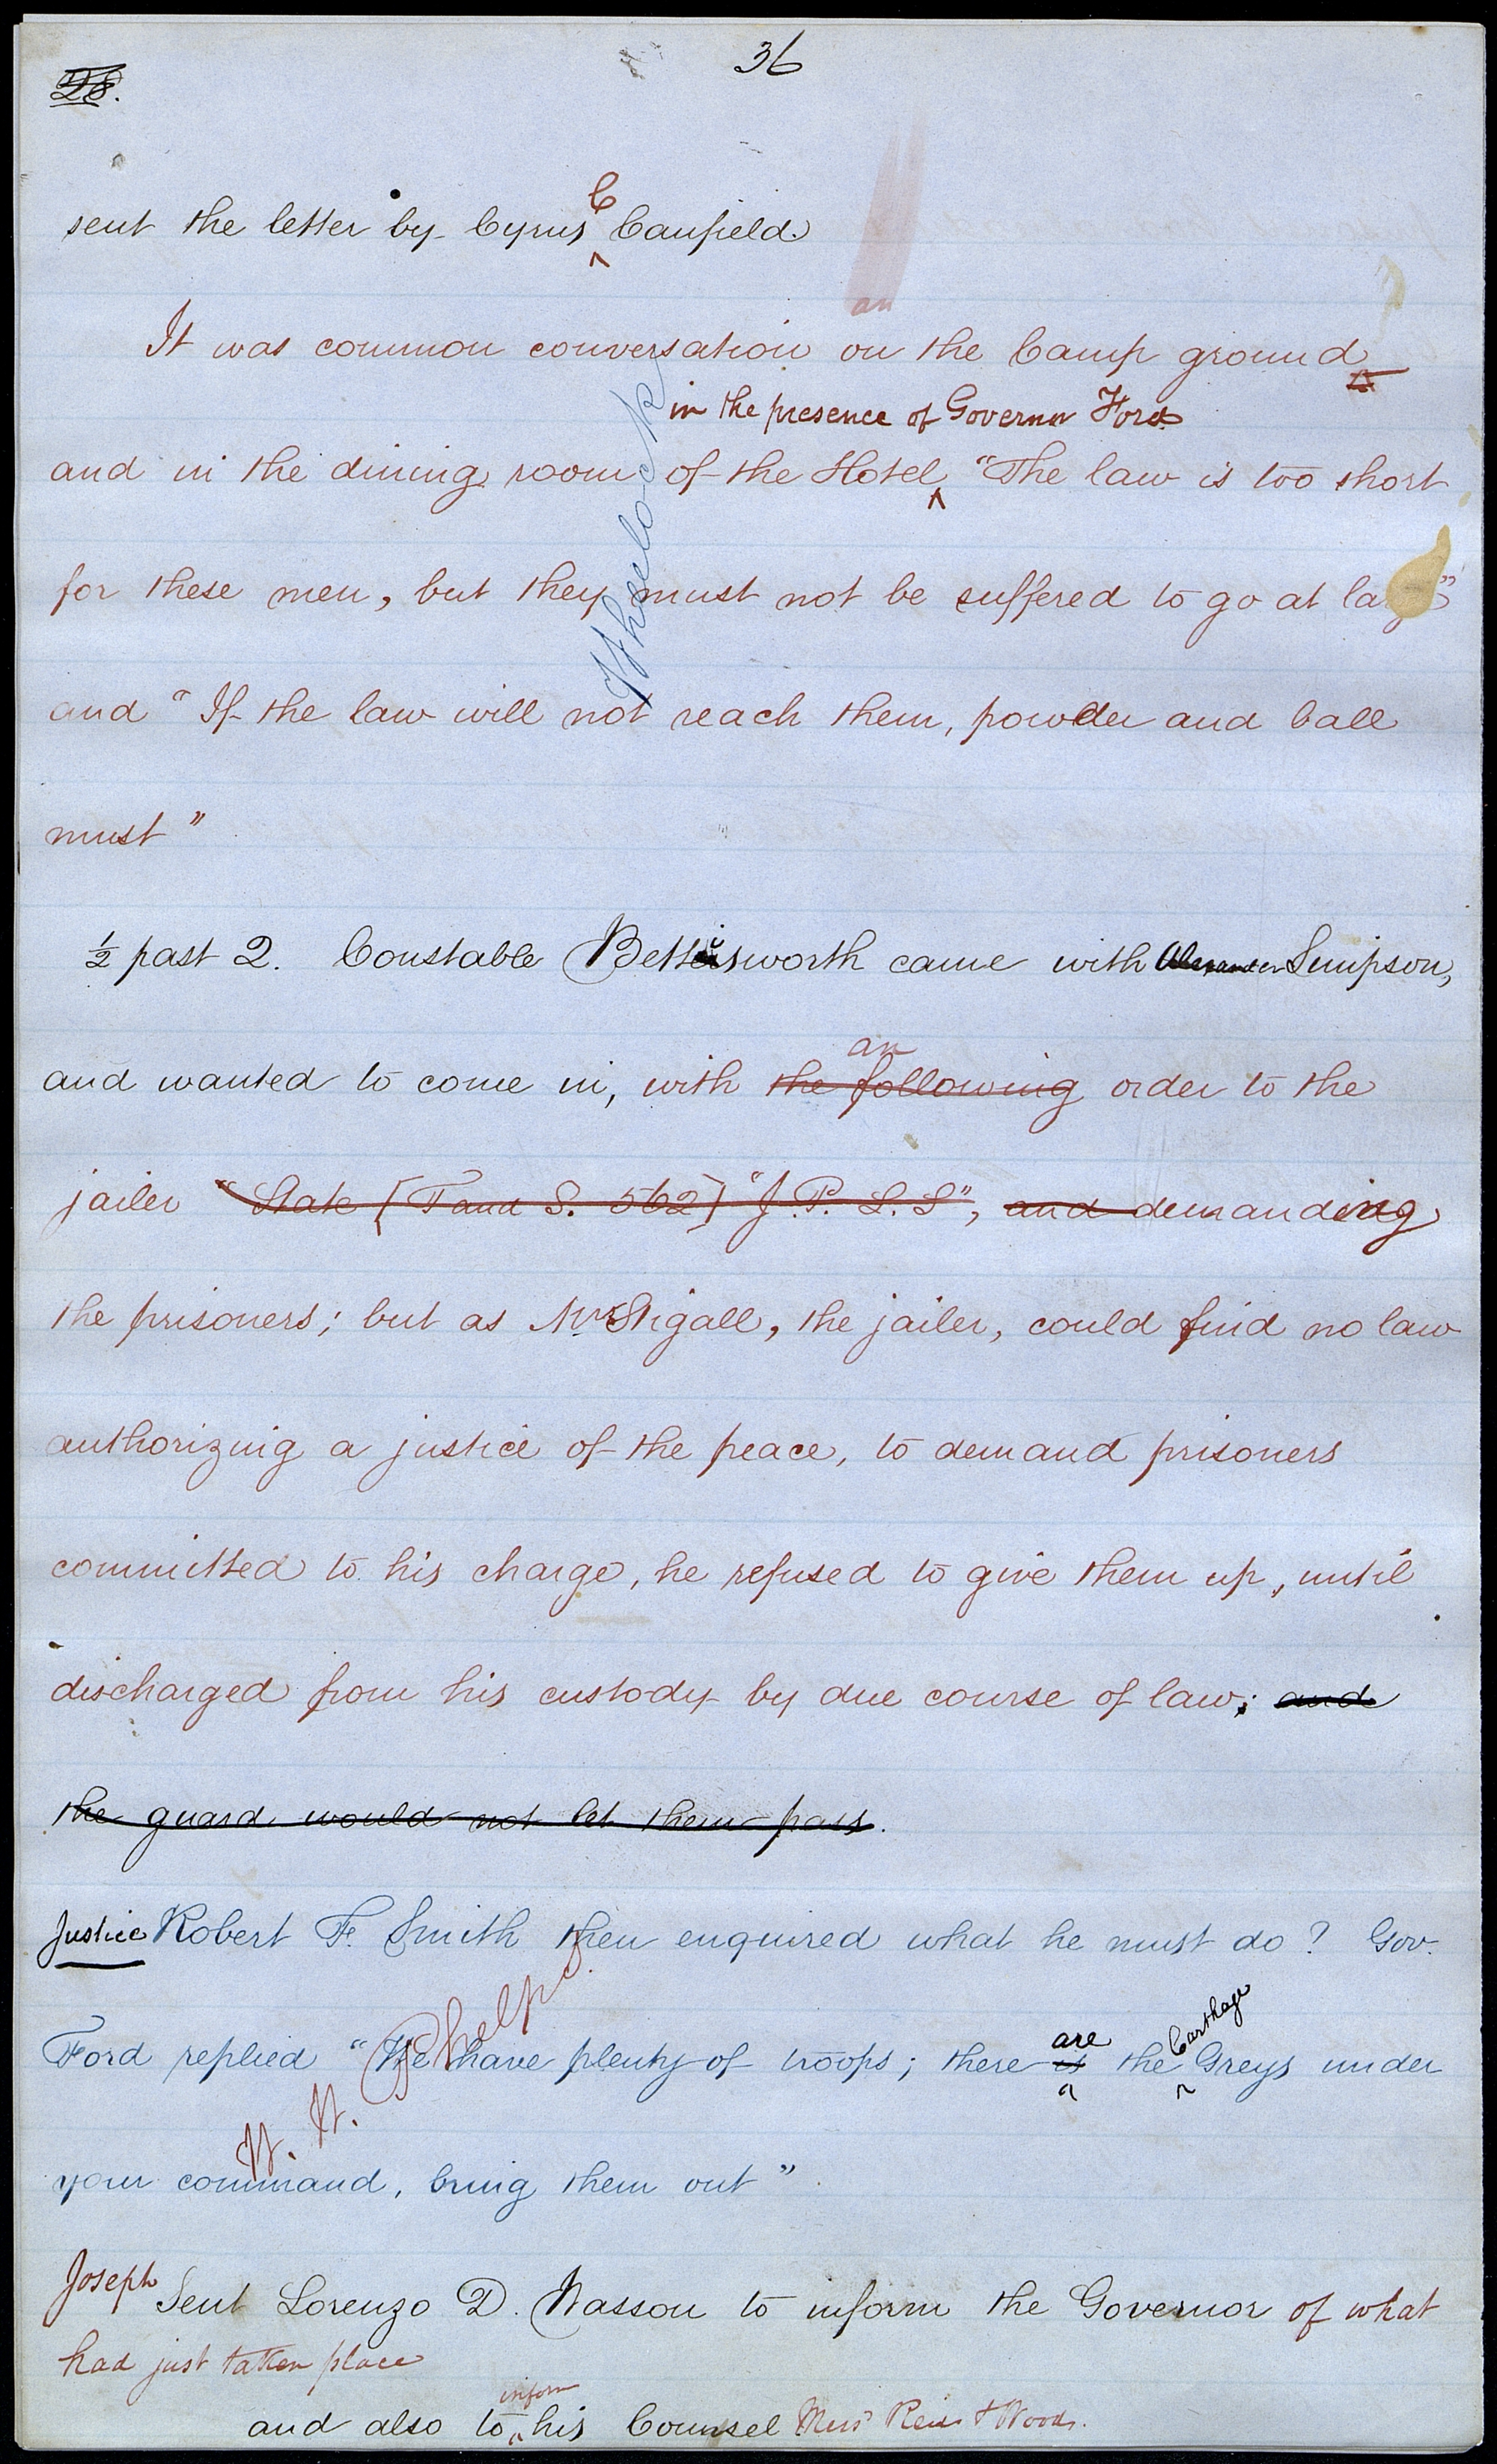 36
28.
C
sent the letter by Cyrus ^ Canfield.
an
It was common conversation on the Camp ground
in the presence of Governor Ford
and in the dining room of the Hotel ^ "The law is too short
for these men, but they must not be suffered to go at large"
and "If the law will not reach them, powder and ball
must"
Wheelock
½ past 2. Constable Bettisworth came with Alexander Simpson,
an
and wanted to come in, with the following order to the
jailer "State [T and S. 562] "J. P. L. S", and demanding
the prisoners; but as Mr Stigall, the jailer, could find no law
authorizing a justice of the peace, to demand prisoners
committed to his charge, he refused to give them up, until
discharged from his custody by due course of law; and
the guard would not let them pass.
Justice Robert F. Smith then enquired what he must do? Gov.
are Carthage
Ford replied "We have plenty of troops; there is ^ the ^ Greys under
H. H. Phelps.
your command, bring them out"
Joseph Sent Lorenzo D. Wasson to inform the Governor of what
had just taken place
inform
and also to ^ his Counsel Messrs Reid & Woods.